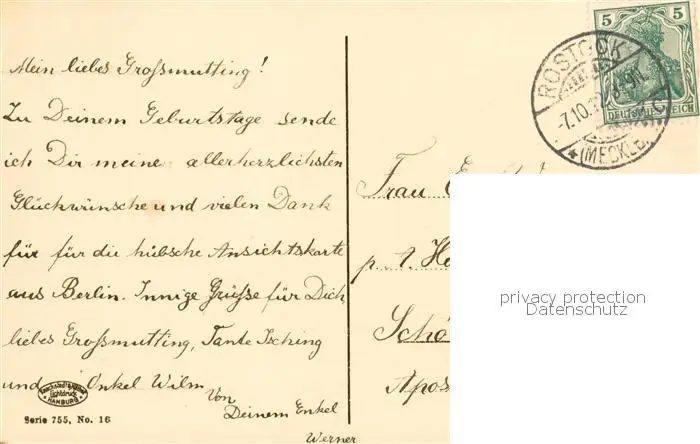 Mein liebes Großmutting!
Zu Deinem Geburtstage sende
ich Dir meine allerherzlichsten
Glückwünsche und vielen Dank
für für die hübsche Ansichtskarte
aus Berlin. Innige Grüße für Dich
liebes Großmutting, Tante Tsching
und Onkel Wilm
Von
Deinem Enkel
Werner
Serie 755, No. 16
HAMBURG
5 5
DEUTSCHES REICH
ROSTOCK
-7.10.
* (MECKLB.)
Frau
p. 1. He
Schö
Apos
privacy protection
Datenschutz